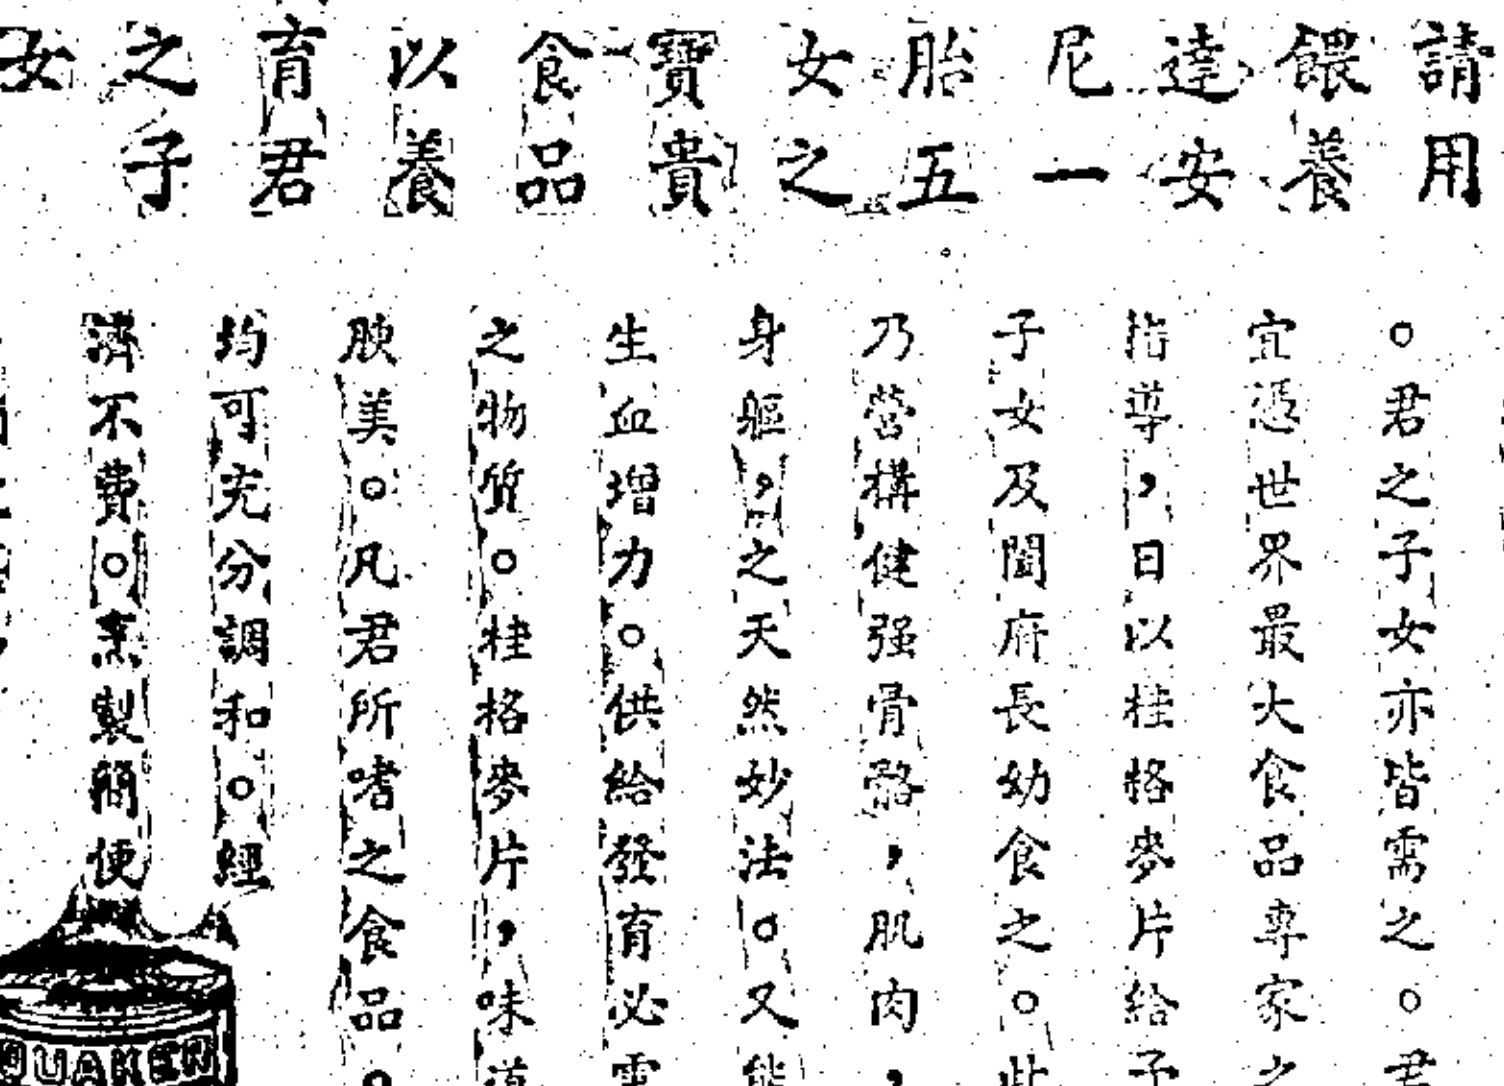 請用
餵養
達安
尼一
胎五
女之
寶貴
食品
以養
育君
之子
女
。君之子女亦皆需之。君
宜憑世界最大食品專家之
指導,日以桂格麥片給子
子女及閤府長幼食之。此
乃營構健强骨骼,肌肉,
身軀,之天然妙法。又能
生血增力。供給發育必需
之物質。桂格麥片,味道
腴美。凡君所嗜之食品。
均可充分調和。經
濟不費。烹製簡便
QUAKER